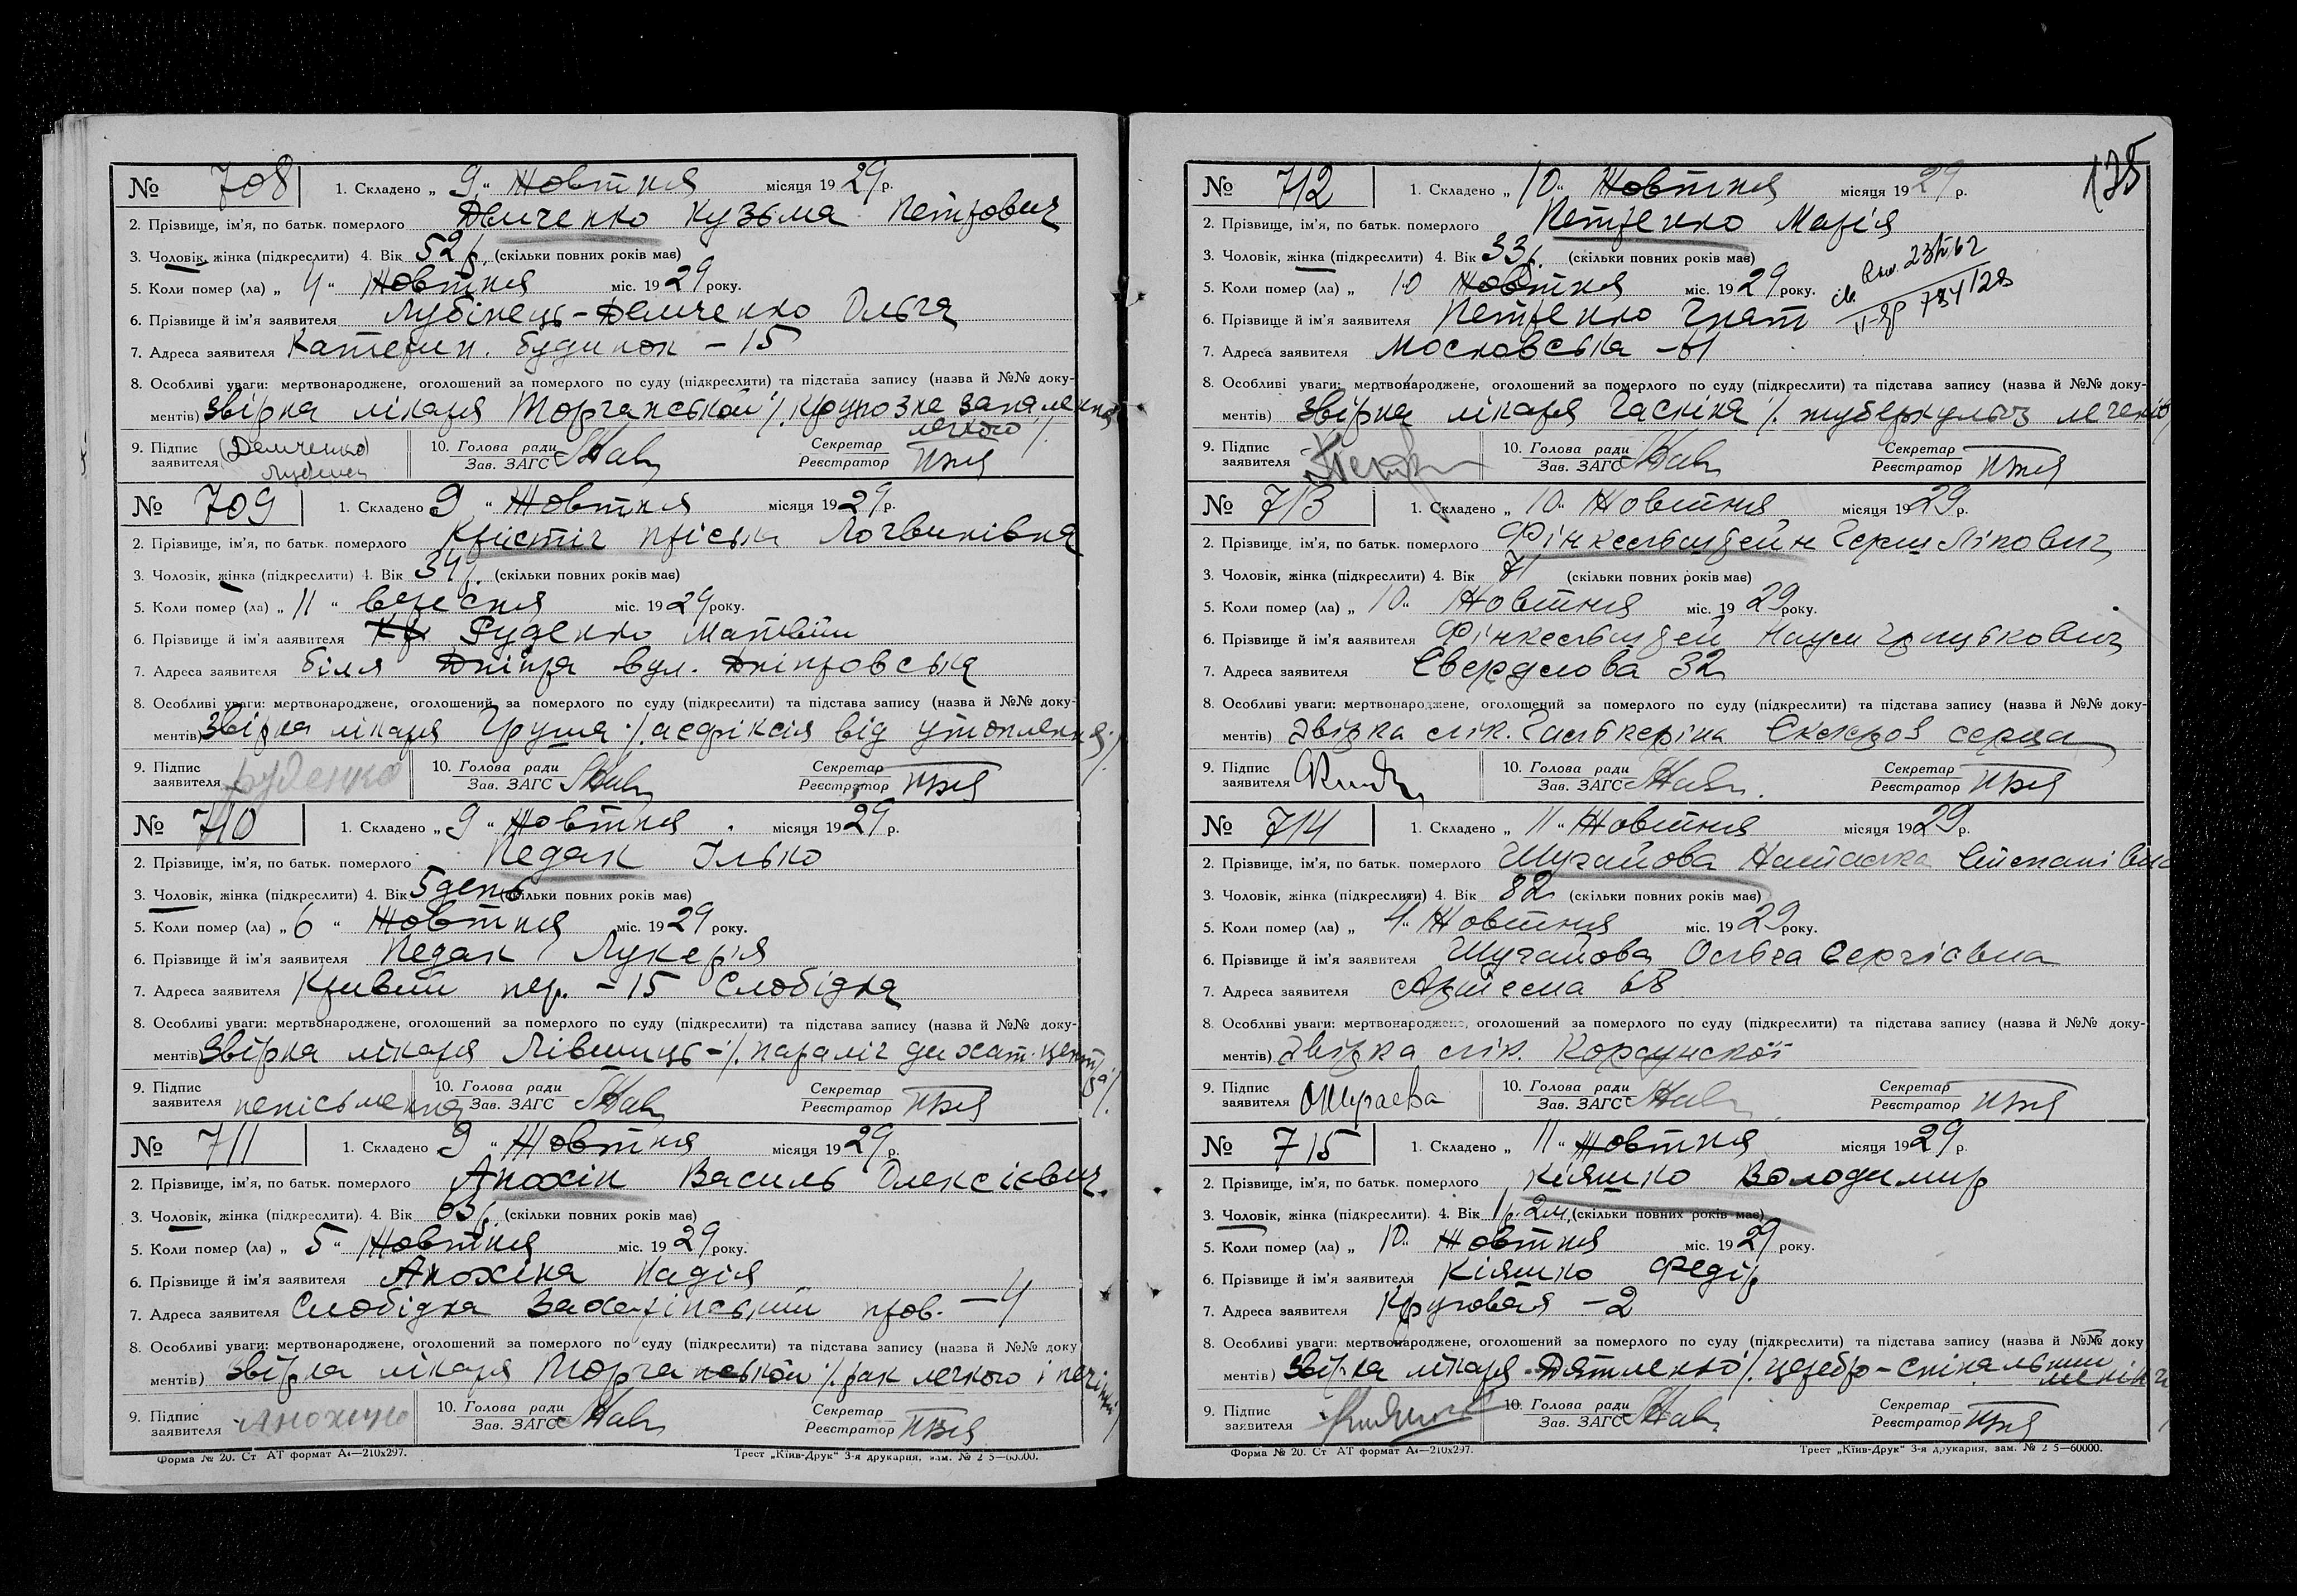 № 708 1. Складено „ 9 “ Жовтня місяця 1929 р.
2. Прізвище, ім’я, по батьк. померлого Демченко Кузьма Петрович
3. Чоловік, жінка (підкреслити) 4. Вік 52 р. (скільки повних років має)
5. Коли помер (ла) „ 4 “ Жовтня міс. 1929 року.
6. Прізвище й ім’я заявителя Лубінець-Демченко Ольга
7. Адреса заявителя Катерин. будинок – 15
8. Особливі уваги: мертвонароджене, оголошений за померлого по суду (підкреслити) та підстава запису (назва й №№ доку-
ментів) Звірка лікаря Торганської /. крупозне запалення
легкого /.
9. Підпис заявителя (Демченко) Лубінец 10. Голова ради Зав. ЗАГС Секретар Реєстратор
№ 709 1. Складено 9 “ Жовтня місяця 1929 р.
2. Прізвище, ім’я, по батьк. померлого Крістіг Пріська Логвинівна
3. Чоловік, жінка (підкреслити) 4. Вік 34 р. (скільки повних років має)
5. Коли помер (ла) „ 11 “ вересня міс. 1929 року.
6. Прізвище й ім’я заявителя Руденко Матвій
7. Адреса заявителя біля Дніпра вул. Дніпровська
8. Особливі уваги: мертвонароджене, оголошений за померлого по суду (підкреслити) та підстава запису (назва й №№ доку-
ментів) Звірка лікаря Груша /. асфіксія від утоплення /.
9. Підпис заявителя Руденко 10. Голова ради Зав. ЗАГС Секретар Реєстратор
№ 710 1. Складено „ 9 “ Жовтня місяця 1929 р.
2. Прізвище, ім’я, по батьк. померлого Педак Ілько
3. Чоловік, жінка (підкреслити) 4. Вік 5 день (скільки повних років має)
5. Коли помер (ла) „ 6 “ Жовтня міс. 1929 року.
6. Прізвище й ім’я заявителя Педак Лукерія
7. Адреса заявителя Кривий пер. – 15 Слобідка
8. Особливі уваги: мертвонароджене, оголошений за померлого по суду (підкреслити) та підстава запису (назва й №№ доку-
ментів) Звірка лікаря Лівшиць – /. параліч дихат. центра /.
9. Підпис заявителя неписьменна 10. Голова ради Зав. ЗАГС Секретар Реєстратор
№ 711 1. Складено 9 “ Жовтня місяця 1929 р.
2. Прізвище, ім’я, по батьк. померлого Анохін Василь Олексієвич.
3. Чоловік, жінка (підкреслити). 4. Вік 63 р. (скільки повних років має)
5. Коли помер (ла) „ 5 “ Жовтня міс. 1929 року.
6. Прізвище й ім’я заявителя Анохіна Надія
7. Адреса заявителя Слобідка Захарінський пров. – 4
8. Особливі уваги: мертвонароджене, оголошений за померлого по суду (підкреслити) та підстава запису (назва й №№ доку
ментів) Звірка лікаря Торганської /. рак легкого і печінки /.
9. Підпис заявителя Анохіна 10. Голова ради Зав. ЗАГС Секретар Реєстратор
Форма № 20. Ст АТ формат А4—210х297. Трест „Київ-Друк“ 3-я друкарня, зам. № 2 5—60000.
135
№ 712 1. Складено „ 10 “ Жовтня місяця 1929 р.
2. Прізвище, ім’я, по батьк. померлого Петренко Марія
3. Чоловік, жінка (підкреслити) 4. Вік 33 р. (скільки повних років має)
5. Коли помер (ла) „ 10 Жовтня міс. 1929 року.
6. Прізвище й ім’я заявителя Петренко Гнат
7. Адреса заявителя Московська – 61
8. Особливі уваги: мертвонароджене, оголошений за померлого по суду (підкреслити) та підстава запису (назва й №№ доку-
ментів) Звірка лікаря Гаскіна /. туберкульоз легенів /
9. Підпис заявителя 10. Голова ради Зав. ЗАГС Секретар Реєстратор
№ 713 1. Складено „ 10 “ Жовтня місяця 1929 р.
2. Прізвище, ім’я, по батьк. померлого Фінкельштейн Герш Ліпович
3. Чоловік, жінка (підкреслити) 4. Вік 71 (скільки повних років має)
5. Коли помер (ла) „ 10 “ Жовтня міс. 1929 року.
6. Прізвище й ім’я заявителя Фінкельштей Наум
7. Адреса заявителя Свердлова 32
8. Особливі уваги: мертвонароджене, оголошений за померлого по суду (підкреслити) та підстава запису (назва й №№ доку-
ментів) Звірка лік. Гальперіна Склероз серца
9. Підпис заявителя 10. Голова ради Зав. ЗАГС Секретар Реєстратор
№ 714 1. Складено „ 11 “ Жовтня місяця 1929 р.
2. Прізвище, ім’я, по батьк. померлого Шугайова Настаська Степанівна
3. Чоловік, жінка (підкреслити) 4. Вік 82 (скільки повних років має)
5. Коли помер (ла) „ 4 “ Жовтня міс. 1929 року.
6. Прізвище й ім’я заявителя Шугайова Ольга Сергієвна
7. Адреса заявителя Артема 68
8. Особливі уваги: мертвонароджене, оголошений за померлого по суду (підкреслити) та підстава запису (назва й №№ доку-
ментів) Звірка лік. Корсунскої
9. Підпис заявителя ОШугаева 10. Голова ради Зав. ЗАГС Секретар Реєстратор
№ 715 1. Складено „ 11 “ Жовтня місяця 1929 р.
2. Прізвище, ім’я, по батьк. померлого Кіяшко Володимир
3. Чоловік, жінка (підкреслити). 4. Вік 1 р. 2 м. (скільки повних років має)
5. Коли помер (ла) „ 10 “ Жовтня міс. 1929 року.
6. Прізвище й ім’я заявителя Кіяшко Федір
7. Адреса заявителя Кругова́я – 2
8. Особливі уваги: мертвонароджене, оголошений за померлого по суду (підкреслити) та підстава запису (назва й №№ доку
ментів) Звірка лікаря Дятленко /. церебр-спінальний менінгіт
9. Підпис заявителя 10. Голова ради Зав. ЗАГС Секретар Реєстратор
Форма № 20. Ст АТ формат А4—210х297. Трест „Київ-Друк“ 3-я друкарня, зам. № 2 5—60000.